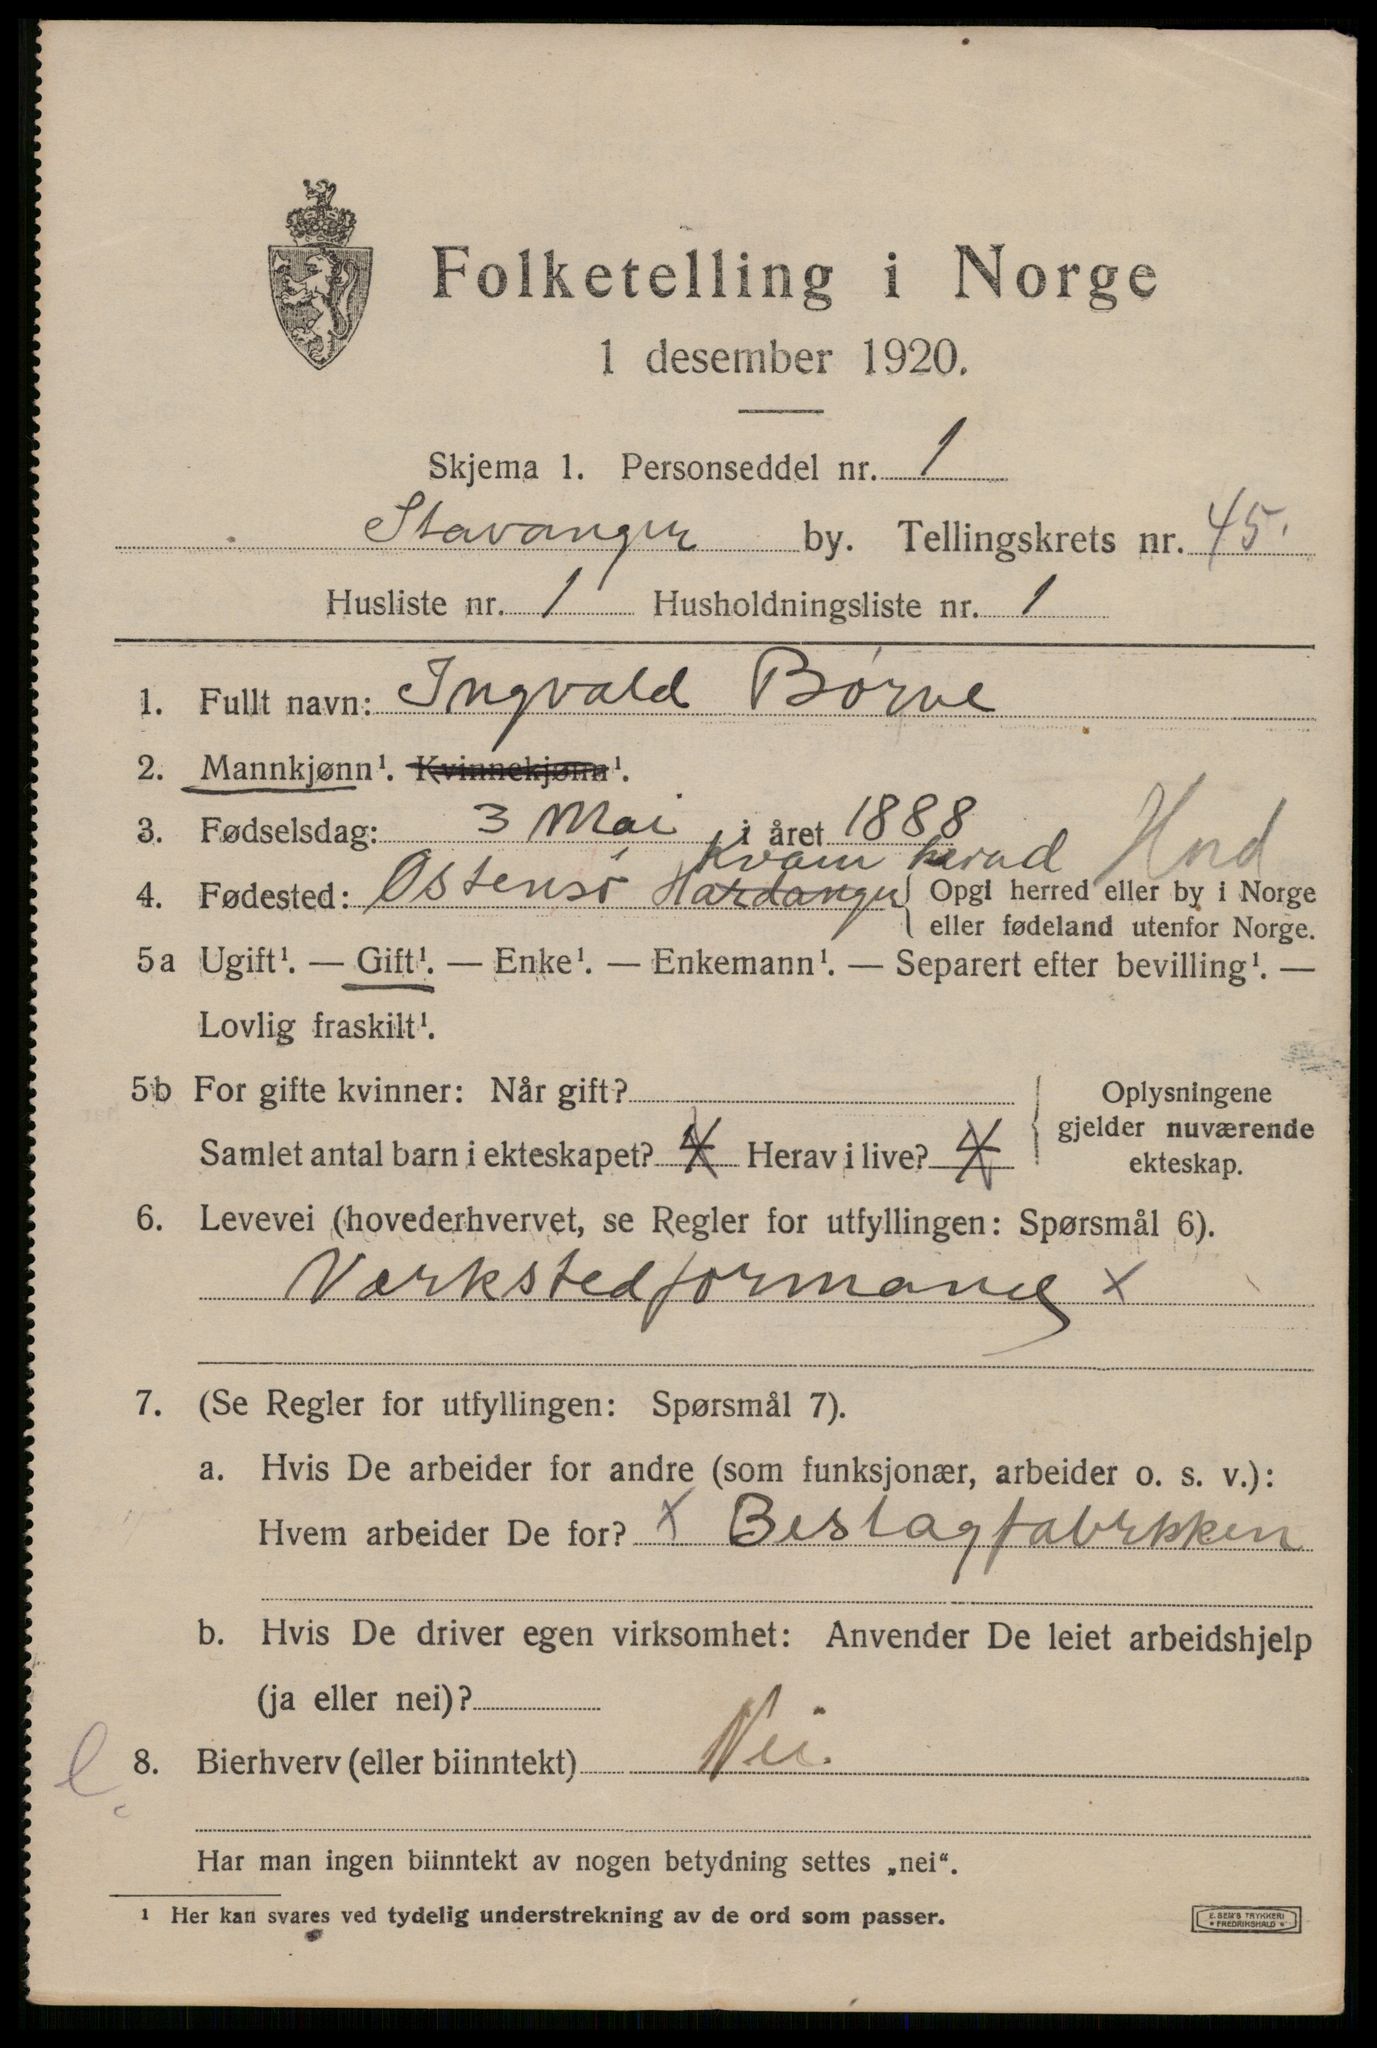 Folketelling i Norge
1 desember 1920.
Skjema 1. Personseddel nr. 1
Stavanger by. Tellingskrets nr. 45.
Husliste nr. 1 Husholdningsliste nr. 1
1. Fullt navn: Ingvald Børve
2. Mannkjønn¹. Kvinnekjønn¹.
3. Fødselsdag: 3 Mai i året 1888
Kvam herad Hord
4. Fødested: Østensø Hardanger { Opgi herred eller by i Norge
eller fødeland utenfor Norge.
5a Ugift¹. — Gift¹. — Enke¹. — Enkemann¹. — Separert efter bevilling¹. —
Lovlig fraskilt¹.
5b For gifte kvinner: Når gift?
Samlet antal barn i ekteskapet? 4 Herav i live? 4
Oplysningene
gjelder nuværende
ekteskap.
6. Levevei (hovederhvervet, se Regler for utfyllingen: Spørsmål 6).
Værkstedformand x
7. (Se Regler for utfyllingen: Spørsmål 7).
a. Hvis De arbeider for andre (som funksjonær, arbeider o. s. v.):
Hvem arbeider De for? x Beslagfabrikken
b. Hvis De driver egen virksomhet: Anvender De leiet arbeidshjelp
(ja eller nei)?
8. Bierhverv (eller biinntekt) Nei.
Har man ingen biinntekt av nogen betydning settes „nei“.
¹ Her kan svares ved tydelig understrekning av de ord som passer.
E. SEM'S TRYKKERI
* FREDRIKSHALD *